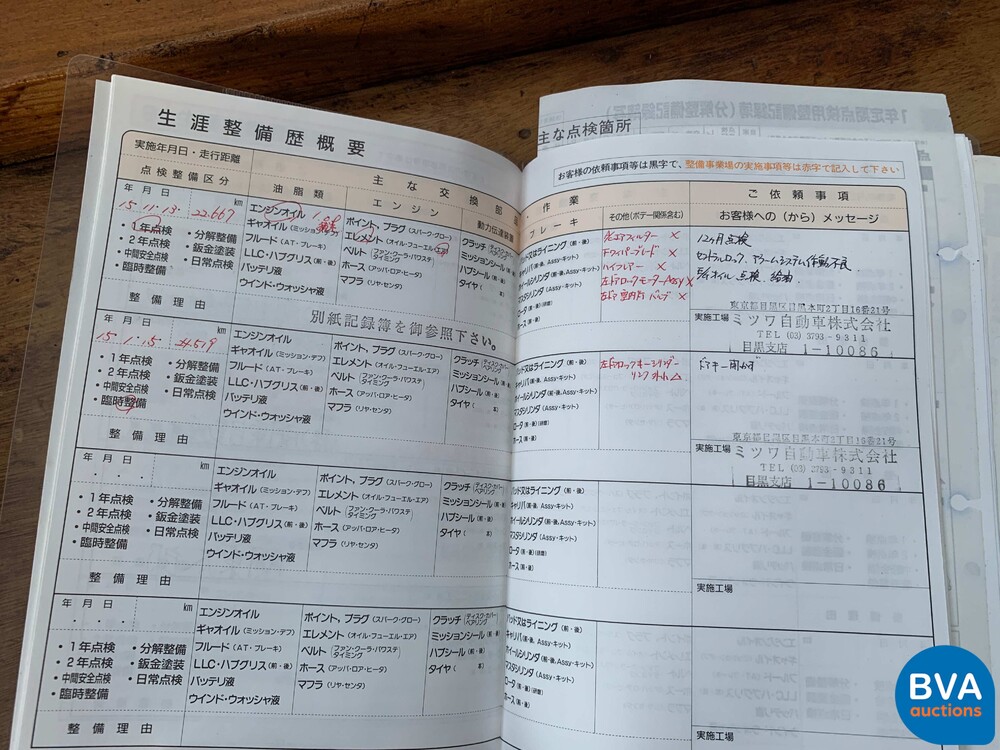 生涯整備歴概要
主な点検箇所
お客様の依頼事項等は黒字で、整備事業場の実施事項等は赤字で記入して下さい
実施年月日・走行距離
主な交換部
・作業
ご依頼事項
点検整備区分
油脂類
エンジン
動力伝達装置
ブレーキ
その他(ボデー関係含む)
お客様への(から)メッセージ
年 月 日 km
15・11・13・ 22.667
・1年点検 ・分解整備
・2年点検 ・鈑金塗装
・中間安全点検 ・日常点検
・臨時整備
整備理由
エンジンオイル
ギャオイル(ミッション・デフ)
フルード(AT・ブレーキ)
LLC・ハブグリス(前・後)
バッテリ液
ウインド・ウォッシャ液
ポイント, プラグ(スパーク・グロー)
エレメント(オイル・フューエル・エア)
ベルト(ファン・クーラ・パウステ タイミング)
ホース(アッパ・ロア・ヒータ)
マフラ(リヤ・センタ)
クラッチ(ディスク・カバー ベアリング)
ミッションシール(前・後)
ハブシール(前・後)
タイヤ( 本)
パッド又はライニング(前・後)
キャリパ(前・後, Assy・キット)
ホイールシリンダ(前・後, Assy・キット)
マスタシリンダ(Assy・キット)
ロータ(前・後)(研磨)
ホース(前・後)
エアフィルター ×
Fワイパーブレード ×
左ドアロックモーターAssy ×
12ヶ月点検
セントラルロック、アラームシステム作動不良
点検 給油
別紙記録簿を御参照下さい。
実施工場
東京都目黒区目黒本町2丁目16番21号
ミツワ自動車株式会社
TEL (03) 3793-9311
目黒支店 1-10086
年 月 日 km
15・1・15・ 24519
・1年点検 ・分解整備
・2年点検 ・鈑金塗装
・中間安全点検 ・日常点検
・臨時整備
整備理由
エンジンオイル
ギャオイル(ミッション・デフ)
フルード(AT・ブレーキ)
LLC・ハブグリス(前・後)
バッテリ液
ウインド・ウォッシャ液
ポイント, プラグ(スパーク・グロー)
エレメント(オイル・フューエル・エア)
ベルト(ファン・クーラ・パウステ タイミング)
ホース(アッパ・ロア・ヒータ)
マフラ(リヤ・センタ)
クラッチ(ディスク・カバー ベアリング)
ミッションシール(前・後)
ハブシール(前・後)
タイヤ( 本)
パッド又はライニング(前・後)
キャリパ(前・後, Assy・キット)
ホイールシリンダ(前・後, Assy・キット)
マスタシリンダ(Assy・キット)
ロータ(前・後)(研磨)
ホース(前・後)
左ドアロックキーシリンダー
ドアキー開かず
実施工場
東京都目黒区目黒本町2丁目16番21号
ミツワ自動車株式会社
TEL (03) 3793-9311
目黒支店 1-10086
年 月 日 km
・1年点検 ・分解整備
・2年点検 ・鈑金塗装
・中間安全点検 ・日常点検
・臨時整備
整備理由
エンジンオイル
ギャオイル(ミッション・デフ)
フルード(AT・ブレーキ)
LLC・ハブグリス(前・後)
バッテリ液
ウインド・ウォッシャ液
ポイント, プラグ(スパーク・グロー)
エレメント(オイル・フューエル・エア)
ベルト(ファン・クーラ・パウステ タイミング)
ホース(アッパ・ロア・ヒータ)
マフラ(リヤ・センタ)
クラッチ(ディスク・カバー ベアリング)
ミッションシール(前・後)
ハブシール(前・後)
タイヤ( 本)
パッド又はライニング(前・後)
キャリパ(前・後, Assy・キット)
ホイールシリンダ(前・後, Assy・キット)
マスタシリンダ(Assy・キット)
ロータ(前・後)(研磨)
ホース(前・後)
実施工場
年 月 日 km
・1年点検 ・分解整備
・2年点検 ・鈑金塗装
・中間安全点検 ・日常点検
・臨時整備
整備理由
エンジンオイル
ギャオイル(ミッション・デフ)
フルード(AT・ブレーキ)
LLC・ハブグリス(前・後)
バッテリ液
ウインド・ウォッシャ液
ポイント, プラグ(スパーク・グロー)
エレメント(オイル・フューエル・エア)
ベルト(ファン・クーラ・パウステ タイミング)
ホース(アッパ・ロア・ヒータ)
マフラ(リヤ・センタ)
クラッチ(ディスク・カバー ベアリング)
ミッションシール(前・後)
ハブシール(前・後)
タイヤ( 本)
パッド又はライニング(前・後)
キャリパ(前・後, Assy・キット)
ホイールシリンダ(前・後, Assy・キット)
マスタシリンダ(Assy・キット)
ロータ(前・後)(研磨)
ホース(前・後)
実施工場
BVA
auctions